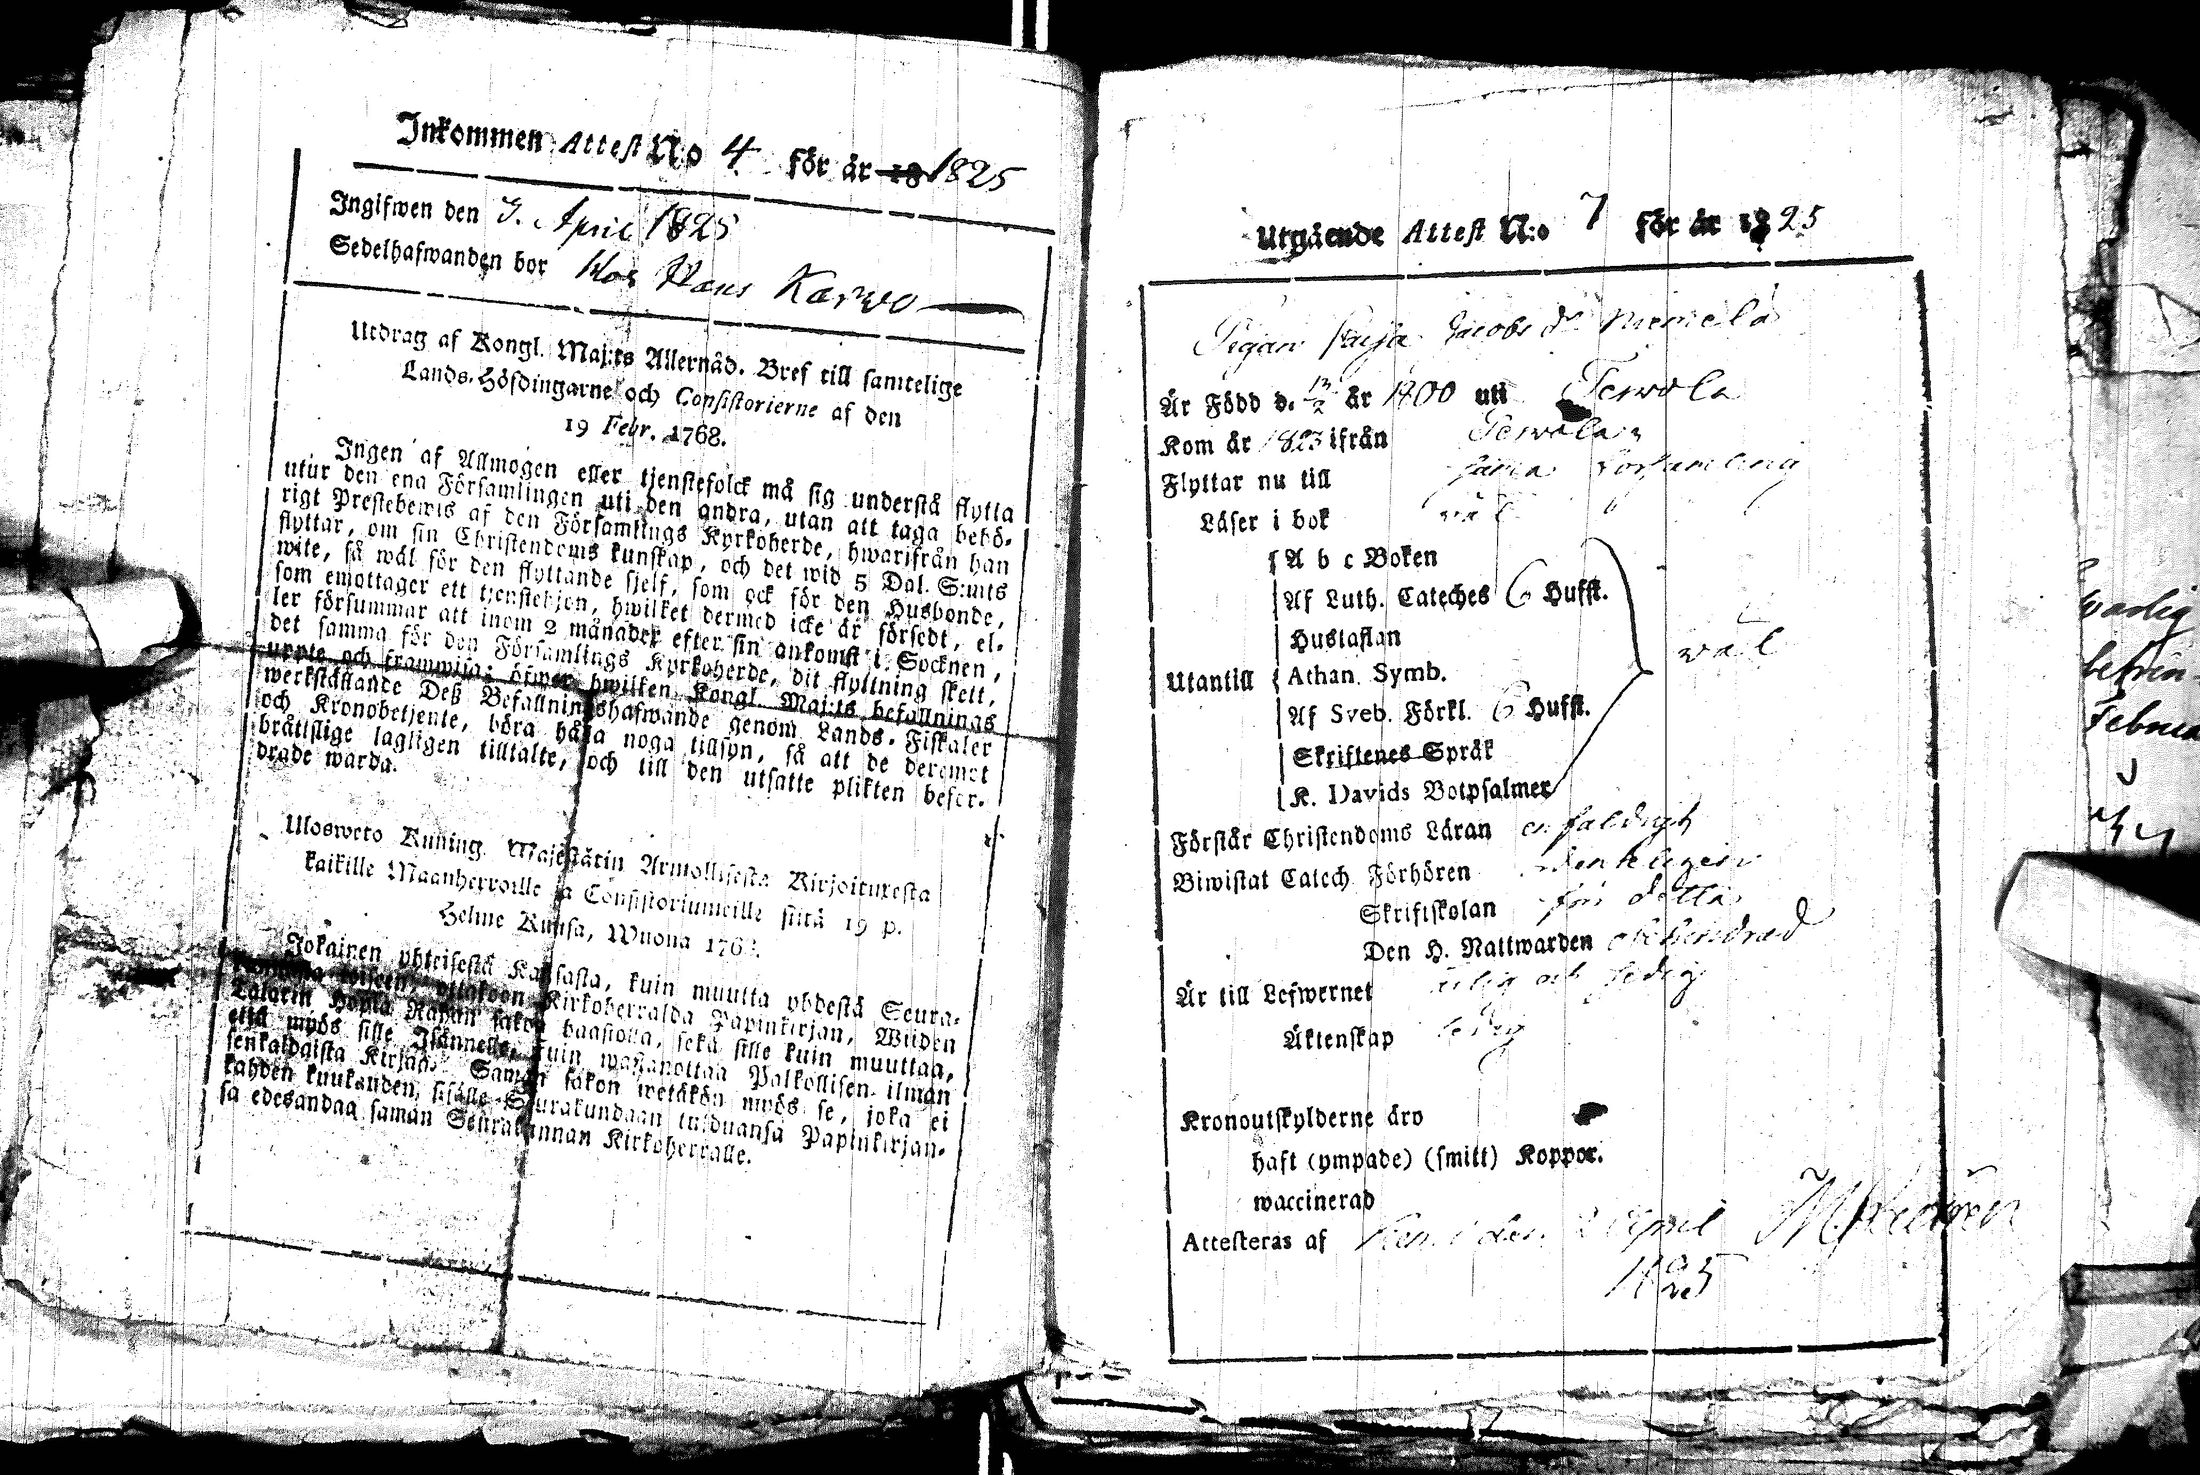 Inkommen Attest N:o 4 för år 18 1825
Ingifwen den 3. April 1825
Sedelhafwanden bor hos Hans Karwo
Utdrag af Kongl. Maj:ts Allernåd. Bref till samtelige
Lands-Höfdingarne och Consistorierne af den
19 Febr. 1768.
Ingen af Allmogen eller tjenstefolck må sig understå flytta
utur den ena Församlingen uti den andra, utan att taga behö-
rigt Prestebewis af den Församlings Kyrkoherde, hwarifrån han
flyttar, om sin Christendoms kunskap, och det wid 5 Dal. S:mts
wite, så wäl för den flyttande sjelf, som ock för den Husbonde,
som emottager ett tjenstehjon, hwilket dermed icke är försedt, el-
ler försummar att inom 2 månader efter sin ankomst i Socknen,
det samma för den Församlings Kyrkoherde, dit flyttning skett,
uppte och framwisa; öfwer hwilken Kongl. Maj:ts befallnings
werkställande Deß Befallningshafwande genom Lands-Fiskaler
och Kronobetjente, böra hafwa noga tillsyn, så att de deremot
bråttslige lagligen tilltalte, och till den utsatte plikten befor-
drade warda.
Ulosweto Kuning. Majestätin Armollisesta Kirjoituxesta
kaikille Maanherroille ja Consistoriumeille siitä 19 p.
Helme Kuusa, Wuona 176
Jokainen yhteisestä Kansasta, kuin muutta yhdestä Seura-
toiseen, Kirkoherralda Papinkirjan, Wiiden
Talarin Hopia Rahan sakon haastolla, sekä sille kuin muuttaa,
että myös sille Isännelle, kuin wastanottaa Palkollisen ilman
senkaldaista Kirjaa. Saman sakon wetäkön myös se, joka ei
kahden kuukauden sisälle Seurakundaan tulduansa Papinkirjan-
sa edesandaa saman Seurakunnan Kirkoherralle.
Utgående Attest N:o 7 för år 1825
Pigan Caisa Jacobs dr Niemelä
Är Född d. 13/2 år 1800 uti Terwola
Kom år 1823 ifrån Terwola
Flyttar nu till samma Församling
Läser i bok wäl
A b c Boken
Af Luth. Cateches 6 Hufst.
Hustaflan
Utantill Athan. Symb. wäl
Af Sveb. Förkl. 6 Hufst.
Skriftenes Språk
K. Davids Botpsalmer
Förstår Christendoms Läran enfaldigt
Biwistat Catech. Förhören
Skriftskolan för detta
Den H. Nattwarden
Är till Lefwernet ärlig och sedig
Äktenskap ledig
Kronoutskylderne äro
haft (ympade) (smitt) Koppor.
waccinerad
Attesteras af Kemi den 2 April
1825